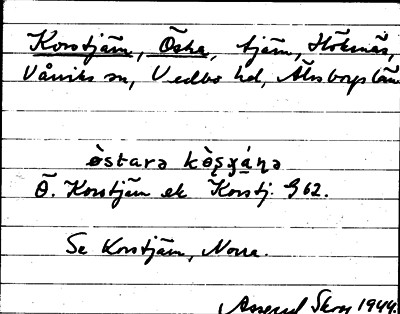 Korstjärn, Östra, tjärn, Höksnäs,
Vårviks sn, Vedbo hd, Älvsborgs län
östarə kòʂʂá̱ɳə
Ö. Korstjärn ek Korstj. G 62.
Se Korstjärn, Norra.
Skog 1944.